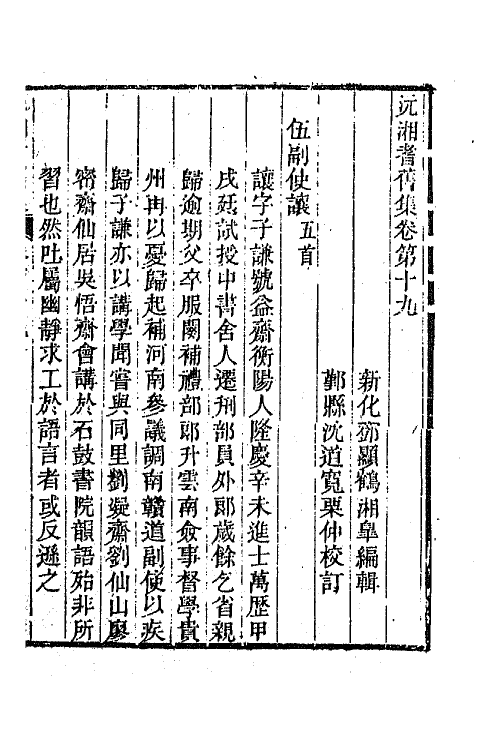 沅湘耆舊集卷第十九
新化鄧顯鶴湘皐編輯
鄞縣沈道寬栗仲校訂
伍副使讓五首
讓字子謙號益齋衡陽人隆慶辛未進士萬歷甲
戌廷試授中書舍人遷刑部員外郎歲餘乞省親
歸逾期父卒服闋補禮部郎升雲南僉事督學貴
州再以憂歸起補河南參議調南贛道副使以疾
歸子謙亦以講學聞嘗與同里劉凝齋劉仙山廖
密齋仙居吳悟齋會講於石鼓書院韻語殆非所
習也然吐屬幽靜求工於語言者或反遜之